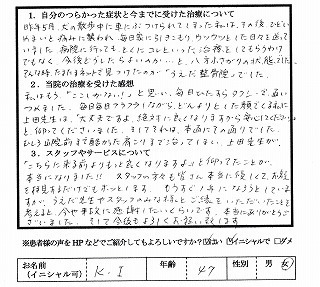 1. 自分のつらかった症状と今までに受けた治療について
昨年5月、犬の散歩中に車にぶつけられてしまった私は、その後ひどい
めまいと痛みに襲われ、毎日家に引きこもり、ウツウツとした日々を送って
いました。病院に行っても、とくにコレといった治療をしてもらうわけ
でもなく、今後どうしたらよいのか…と、八方ふさがりの状態でした。
そんな時、たまたまネットで見つけたのが「うえだ整骨院」でした。
2. 当院の治療を受けた感想
私はもう「ここしかない!」と思い、毎日
つめました。毎日毎日フラフラしながら、どんよりとした顔でくる私に
上田先生は、「大丈夫ですよ、絶対に良くなりますから安心してください」
と、仰ってくださいました。そしてそれは、本当にその通りでした。
むしろ、以前まで酷かった肩こりまで治ってしまい、上田先生が
3. スタッフやサービスについて
「こちらに来る前よりもっと良くなりますよ」と仰ってたことが、
本当になりました!! スタッフの方々も皆さん本当に優しくて、お顔
を拝見するだけでもホッとします。もうすぐ1年になろうとしています
が、うえだ先生やスタッフのみなさまと
考えると、今や事故に感謝したいくらいです。本当にありがとうござ
いました。そして今後もよろしくお願い致します。
※患者様の声をHPなどでご紹介してもよろしいですか? □はい ☑イニシャルで □ダメ
お名前(イニシャル可) K.I 年齢 47 性別 男 女